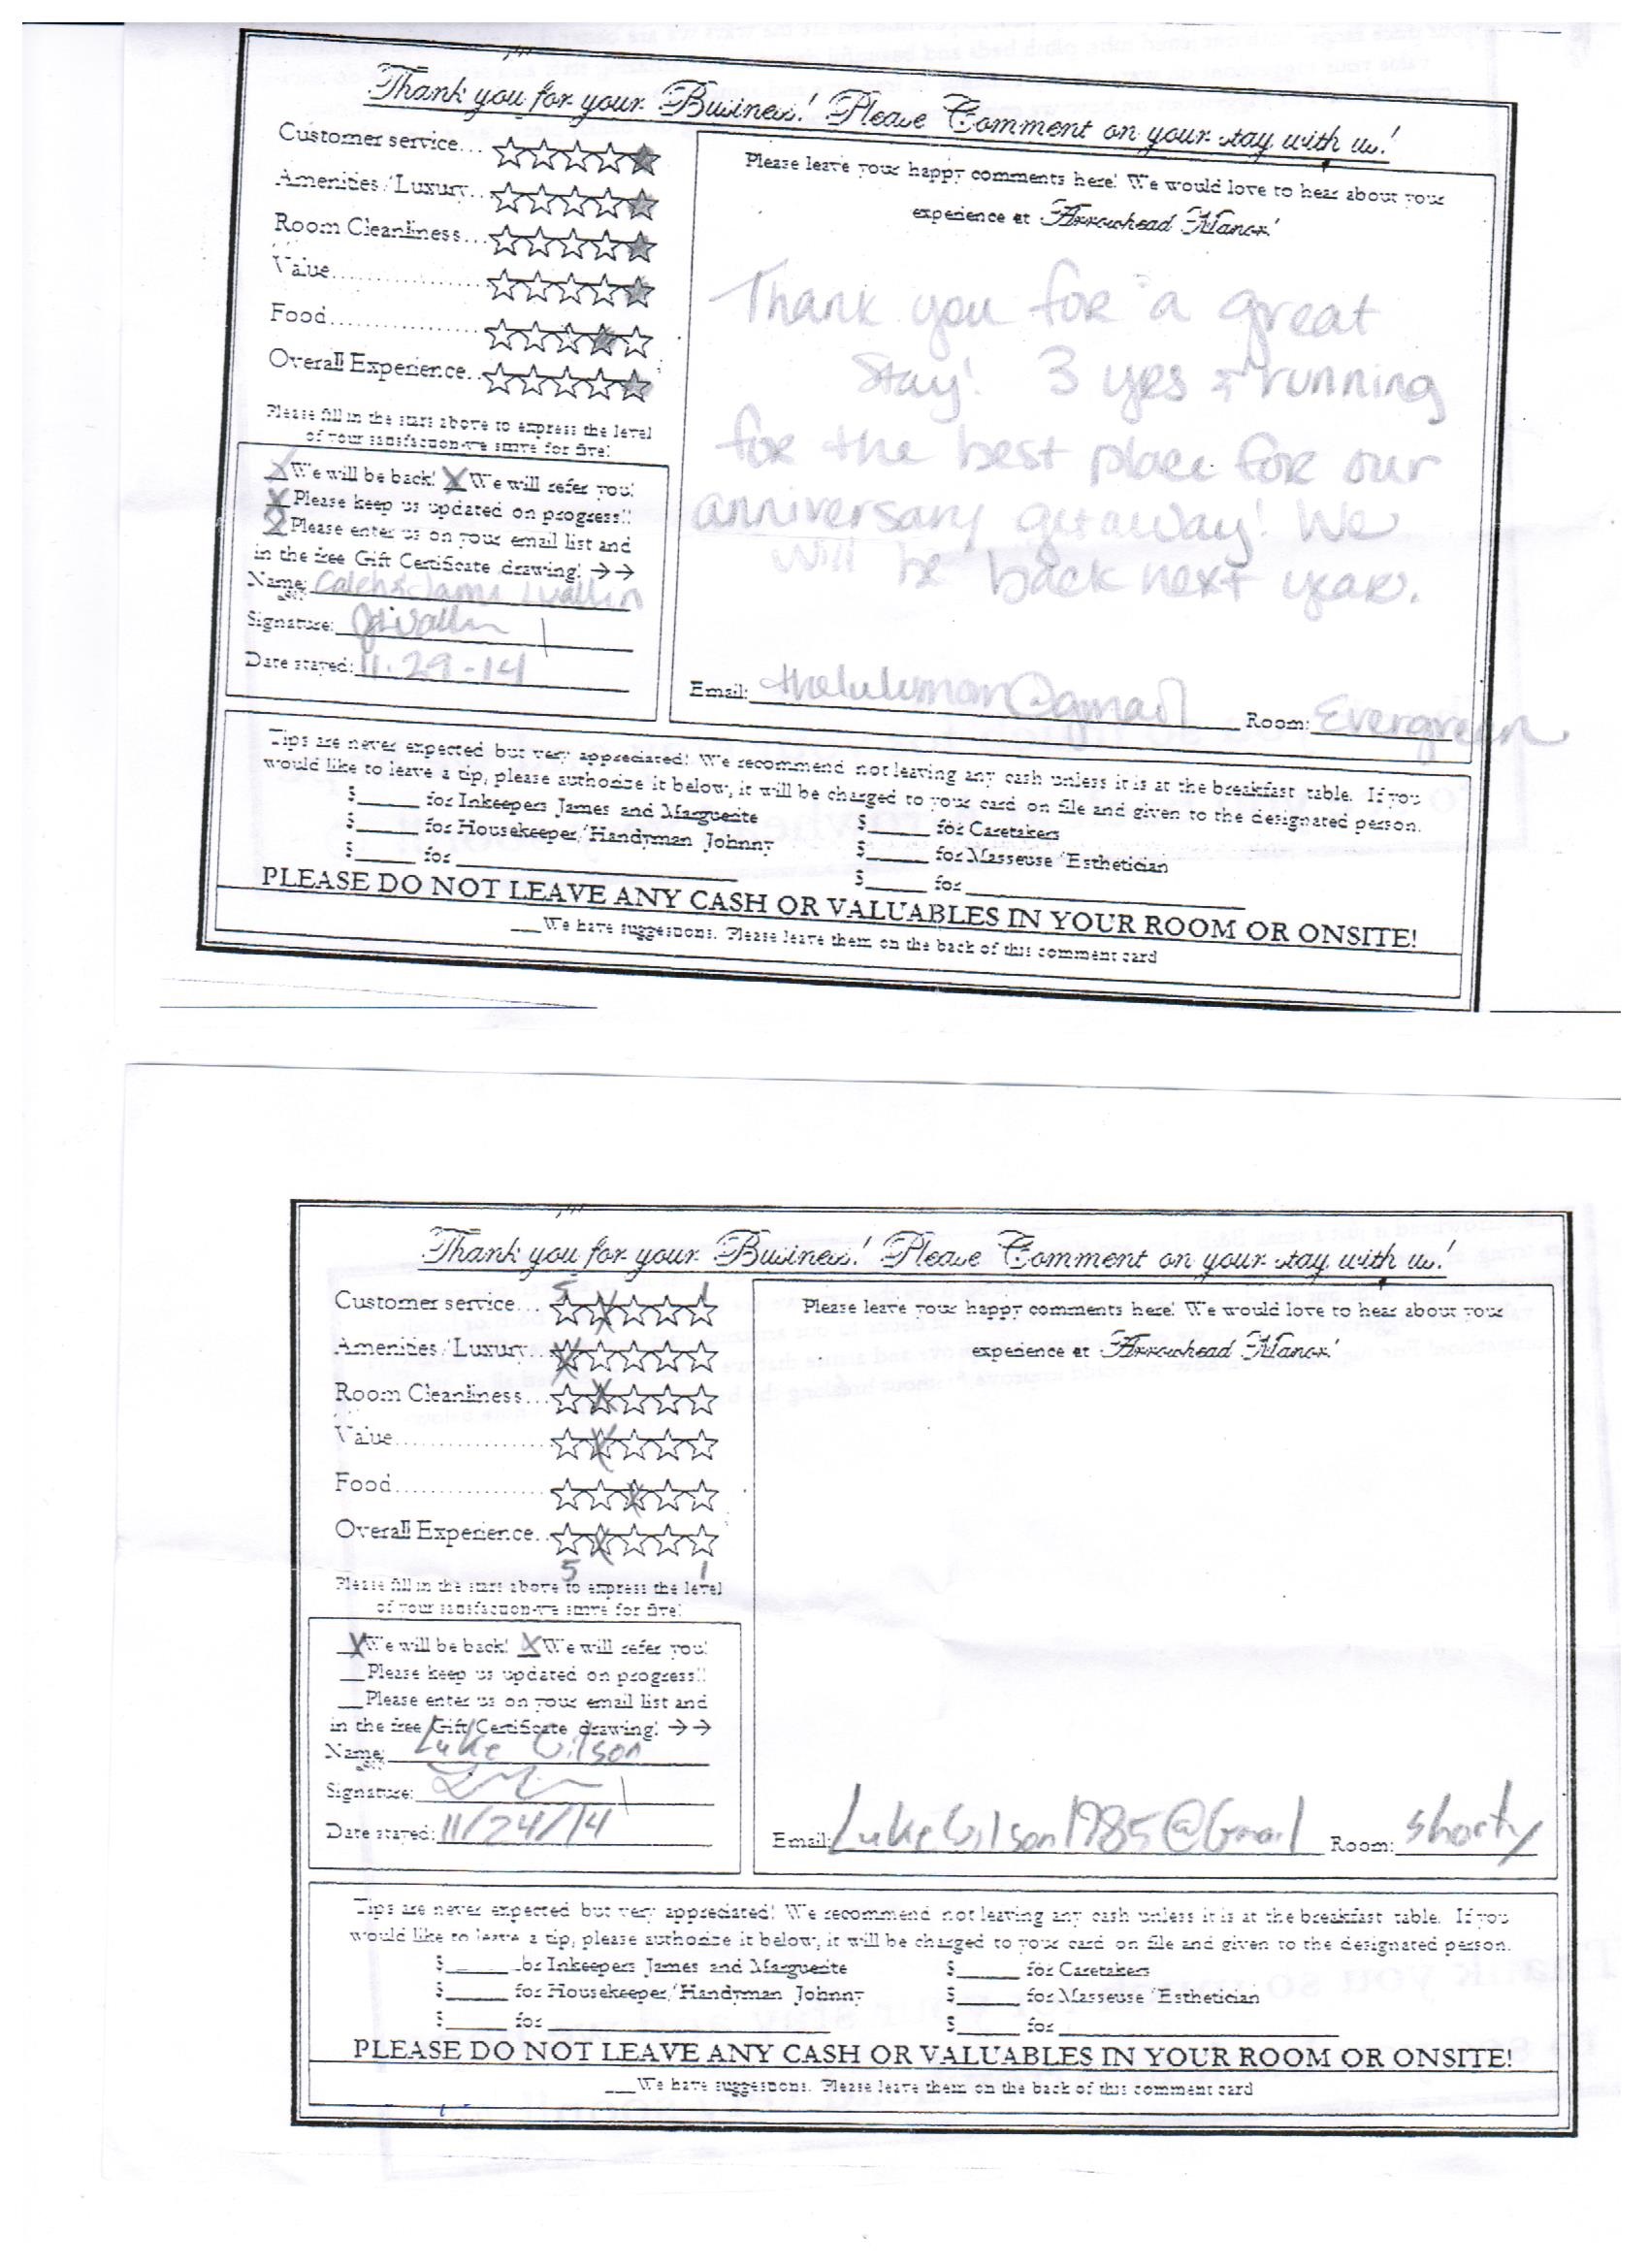 Thank you for your Business! Please Comment on your stay with us!
Customer service...
Amenities/Luxury...
Room Cleanliness...
Value...................
Food..................
Overall Experience..
Please fill in the stars above to express the level
of your satisfaction-we strive for five!
X We will be back! X We will refer you!
X Please keep us updated on progress!!
X Please enter us on your email list and
in the free Gift Certificate drawing! →→
Name: Caleb & Jami
Signature:
Date stayed: 11-29-14
Please leave your happy comments here! We would love to hear about your
experience at Arrowhead Manor!
Thank you for a great
Stay! 3 yrs running
for the best place for our
anniversary getaway! We
will be back next year.
Email: @gmail Room: Evergreen
Tips are never expected but very appreciated! We recommend not leaving any cash unless it is at the breakfast table. If you
would like to leave a tip, please authorize it below, it will be charged to your card on file and given to the designated person.
$_____ for Inkeepers James and Marguerite
$_____ for Housekeeper/Handyman Johnny
$_____ for ____________________
$_____ for Caretakers
$_____ for Masseuse/Esthetician
$_____ for ____________________
PLEASE DO NOT LEAVE ANY CASH OR VALUABLES IN YOUR ROOM OR ONSITE!
___We have suggestions. Please leave them on the back of this comment card
Thank you for your Business! Please Comment on your stay with us!
5 1
Customer service...
Amenities/Luxury...
Room Cleanliness...
Value...................
Food..................
Overall Experience..
5 1
Please fill in the stars above to express the level
of your satisfaction-we strive for five!
X We will be back! X We will refer you!
__Please keep us updated on progress!!
__Please enter us on your email list and
in the free Gift Certificate drawing! →→
Name: Luke Gilson
Signature:
Date stayed: 11/24/14
Please leave your happy comments here! We would love to hear about your
experience at Arrowhead Manor!
Email: LukeGilson1985@Gmail Room: Shorty
Tips are never expected but very appreciated! We recommend not leaving any cash unless it is at the breakfast table. If you
would like to leave a tip, please authorize it below, it will be charged to your card on file and given to the designated person.
$_____ for Inkeepers James and Marguerite
$_____ for Housekeeper/Handyman Johnny
$_____ for ____________________
$_____ for Caretakers
$_____ for Masseuse/Esthetician
$_____ for ____________________
PLEASE DO NOT LEAVE ANY CASH OR VALUABLES IN YOUR ROOM OR ONSITE!
___We have suggestions. Please leave them on the back of this comment card